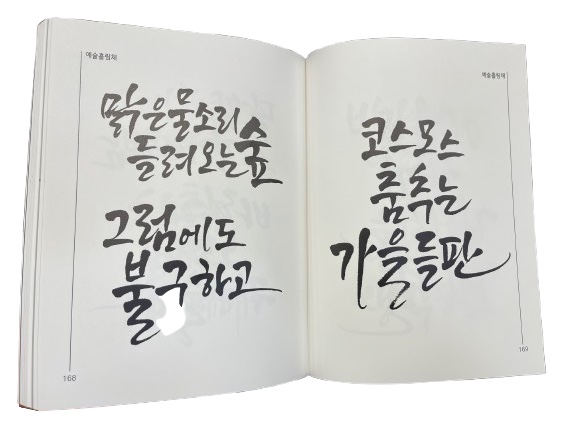 예술흘림체
맑은물소리
들려오는숲
그럼에도
불구하고
168
예술흘림체
코스모스
춤추는
가을들판
169